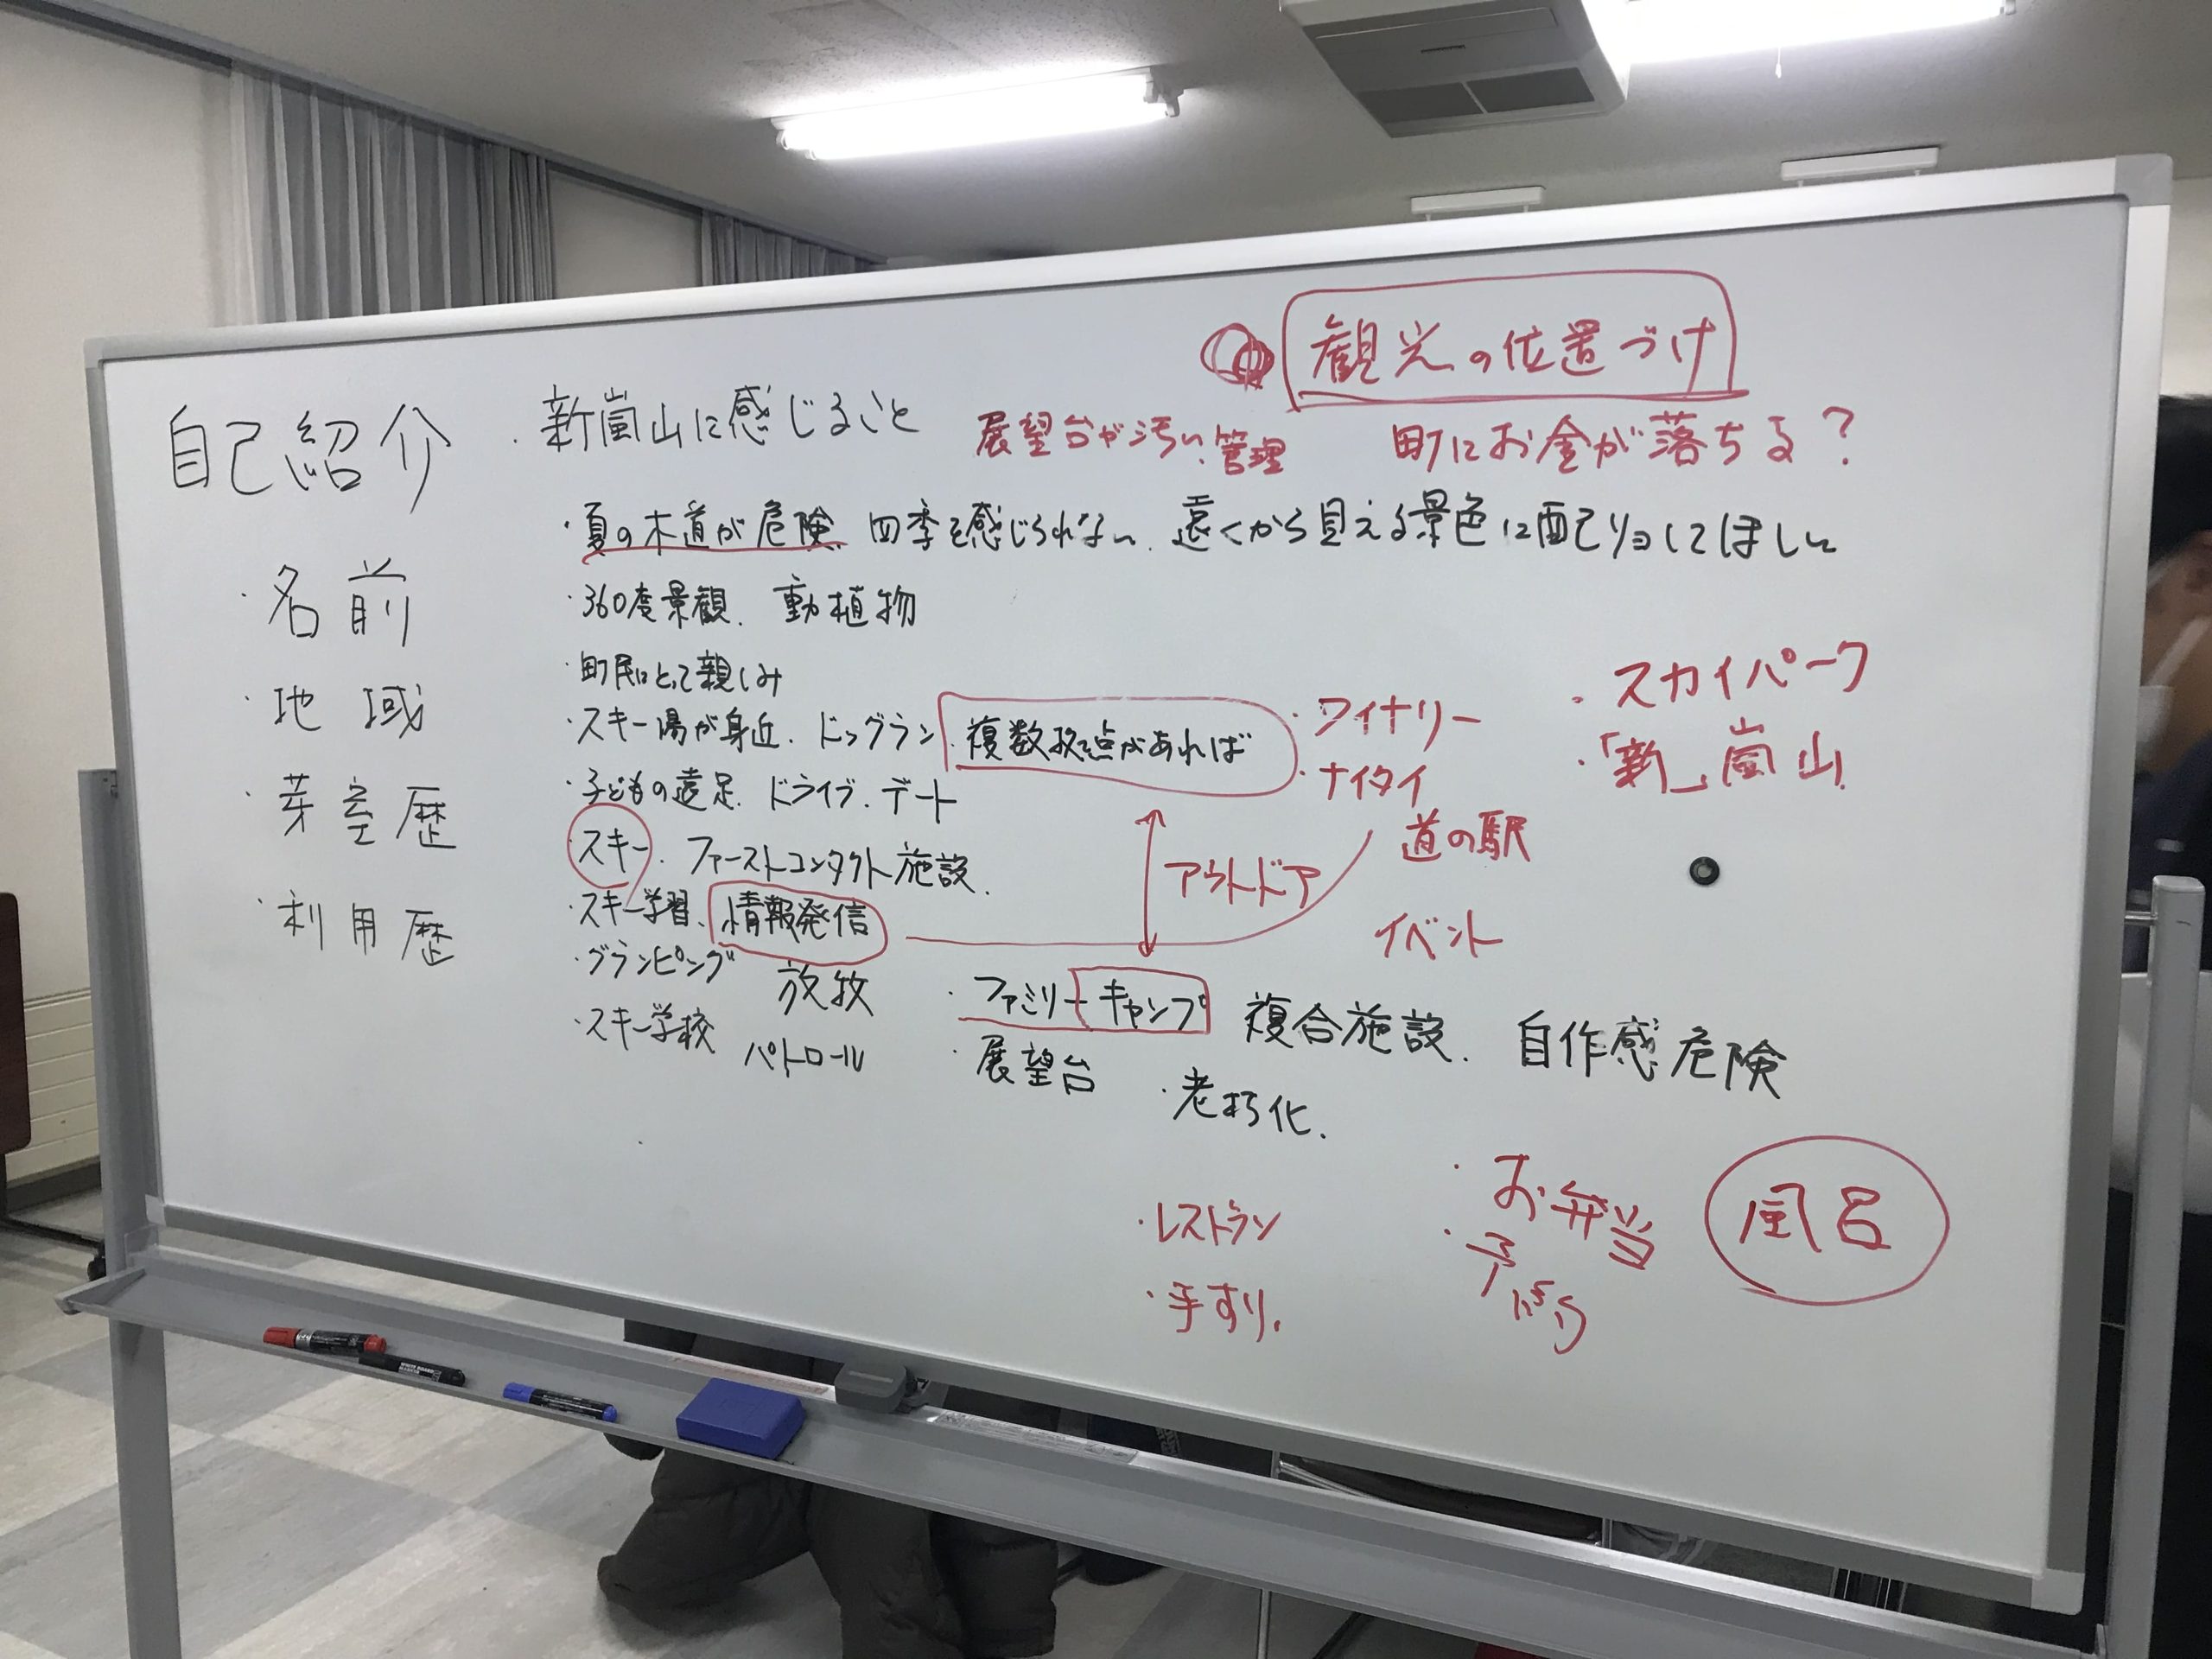 自己紹介
・名前
・地域
・芽室歴
・利用歴
・新嵐山に感じること
展望台が汚い、管理
観光の位置づけ
町にお金が落ちる？
・夏の木道が危険、四季を感じられない、遠くから見える景色に配リョしてほしい
・360度景観、動植物
・町民にとって親しみ
・スキー場が身近、ドッグラン、複数拠点があれば
・子どもの遠足、ドライブ、デート
・スキー、ファーストコンタクト施設、
・スキー学習、情報発信
・グランピング 放牧
・スキー学校 パトロール
・ワイナリー
・ナイタイ
道の駅
アウトドア
イベント
・スカイパーク
・「新」嵐山
・ファミリーキャンプ 複合施設、自作感危険
・展望台 ・老朽化、
・レストラン
・手すり、
・お弁当
風呂